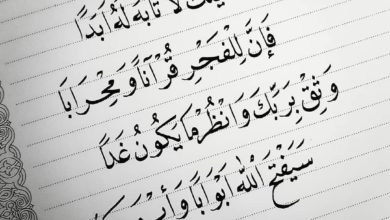 لا تأبه له أبدًا
فَإِنَّ لِلْفَجْرِ قُرْآنًا وَمِحْرَابًا
وَثِقْ بِرَبِّكَ وَانْظُرْ مَا يَكُونُ غَدًا
سَيَفْتَحُ اللهُ أَبْوَابًا